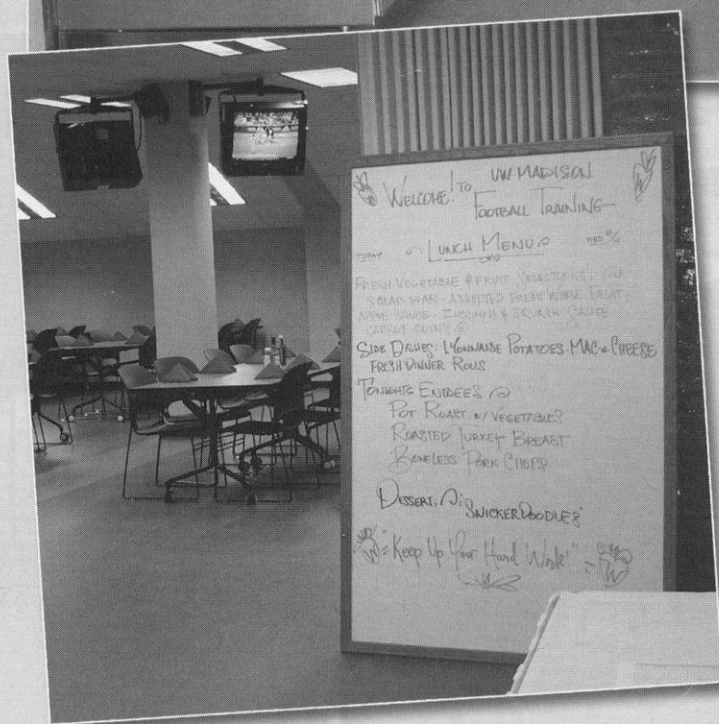 UW MADISON
WELCOME! TO
FOOTBALL TRAINING
LUNCH MENU
FRESH VEGETABLE & FRUIT SELECTIONS:
SALAD BAR - ASSORTED FRESH WHOLE FRUIT -
ZUCCHINI & SQUASH SAUTE
CARROT
SIDE DISHES: LYONNAISE POTATOES - MAC & CHEESE
FRESH DINNER ROLLS
TONIGHTS ENTREES
POT ROAST W/ VEGETABLES
ROASTED TURKEY BREAST
BONELESS PORK CHOPS
DESSERT: "SNICKERDOODLES"
"Keep Up Your Hard Work!"